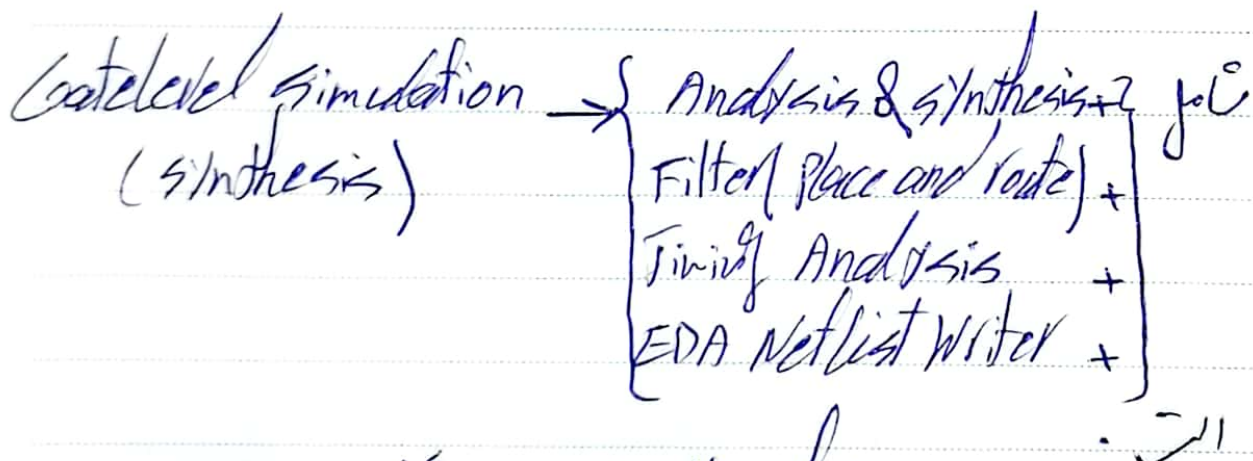 Gatelevel simulation → { Analysis & synthesis +
(synthesis)
Filter (Place and route) +
Timing Analysis +
EDA Netlist Writer +